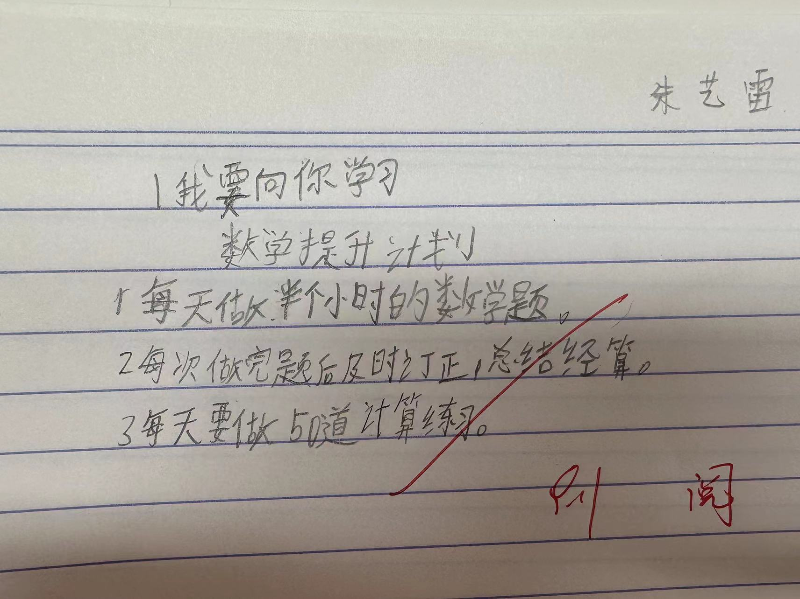 朱艺雷
1我要向你学习
数学提升计划
1每天做半个小时的数学题。
2每次做完题后及时订正,总结经算。
3每天要做50道计算练习。
阅